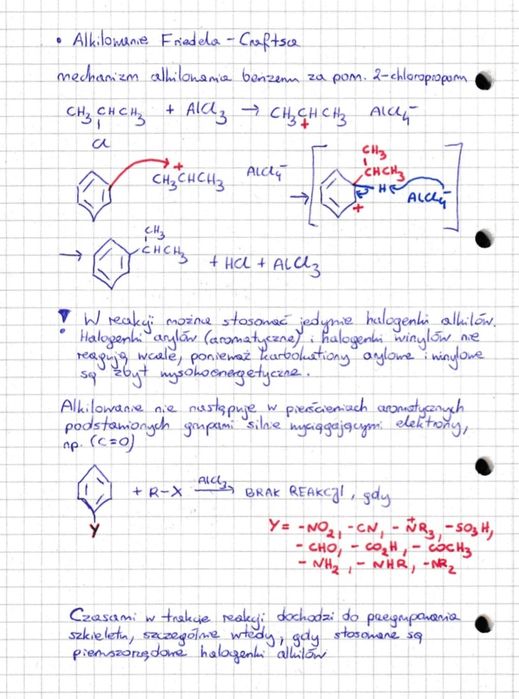 • Alkilowanie Friedela-Craftsa
mechanizm alkilowania benzenu za pom. 2-chloropropanu
CH3CHCH3 + AlCl3 → CH3CHCH3 AlCl4-
Cl +
+ CH3
CH3CHCH3 AlCl4- → CHCH3
H AlCl4-
+
CH3
→ CHCH3 + HCl + AlCl3
! W reakcji można stosować jedynie halogenki alkilów.
Halogenki arylów (aromatyczne) i halogenki winylów nie
reagują wcale, ponieważ karbokationy arylowe i winylowe
są zbyt wysokoenergetyczne.
Alkilowanie nie następuje w pierścieniach aromatycznych
podstawionych grupami silnie wyciągającymi elektrony,
np. (C=O)
+ R-X AlCl3 → BRAK REAKCJI, gdy
Y
Y = -NO2, -CN, -N+R3, -SO3H,
-CHO, -CO2H, -COCH3
-NH2, -NHR, -NR2
Czasami w trakcie reakcji dochodzi do przegrupowania
szkieletu, szczególnie wtedy, gdy stosowane są
pierwszorzędowe halogenki alkilów